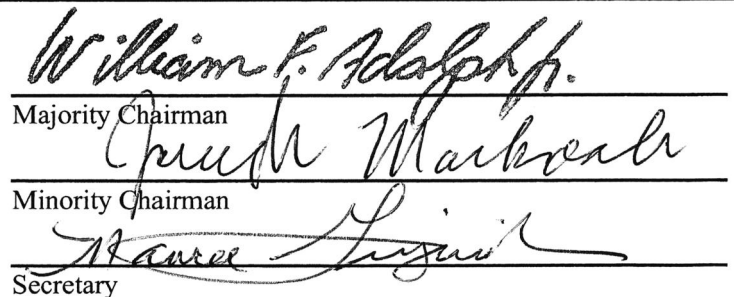 William F. Adolph Jr.
Majority Chairman
Joseph Markosek
Minority Chairman
Secretary